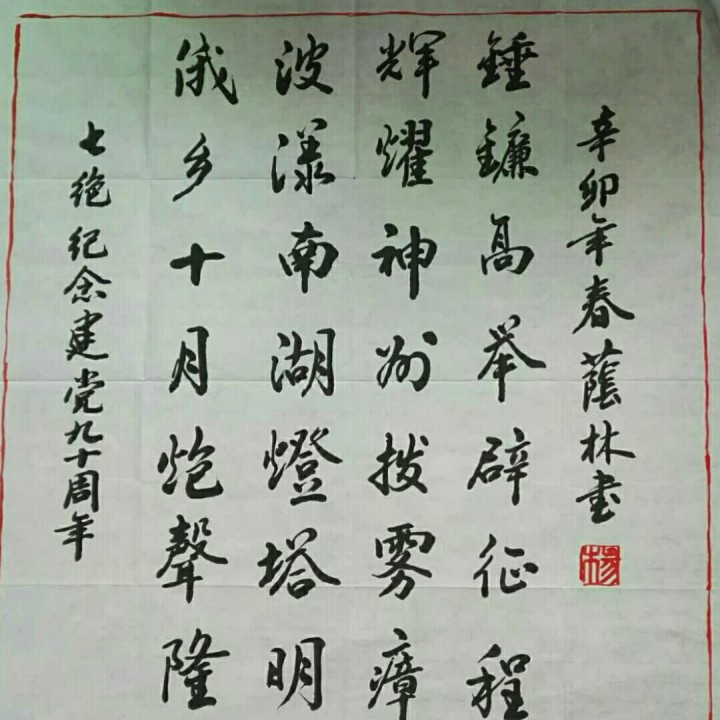 七绝 纪念建党九十周年
俄乡十月炮聲隆
波漾南湖燈塔明
辉耀神州拨雾漳
錘鐮高举辟征程
辛卯年春蔭林书
楊